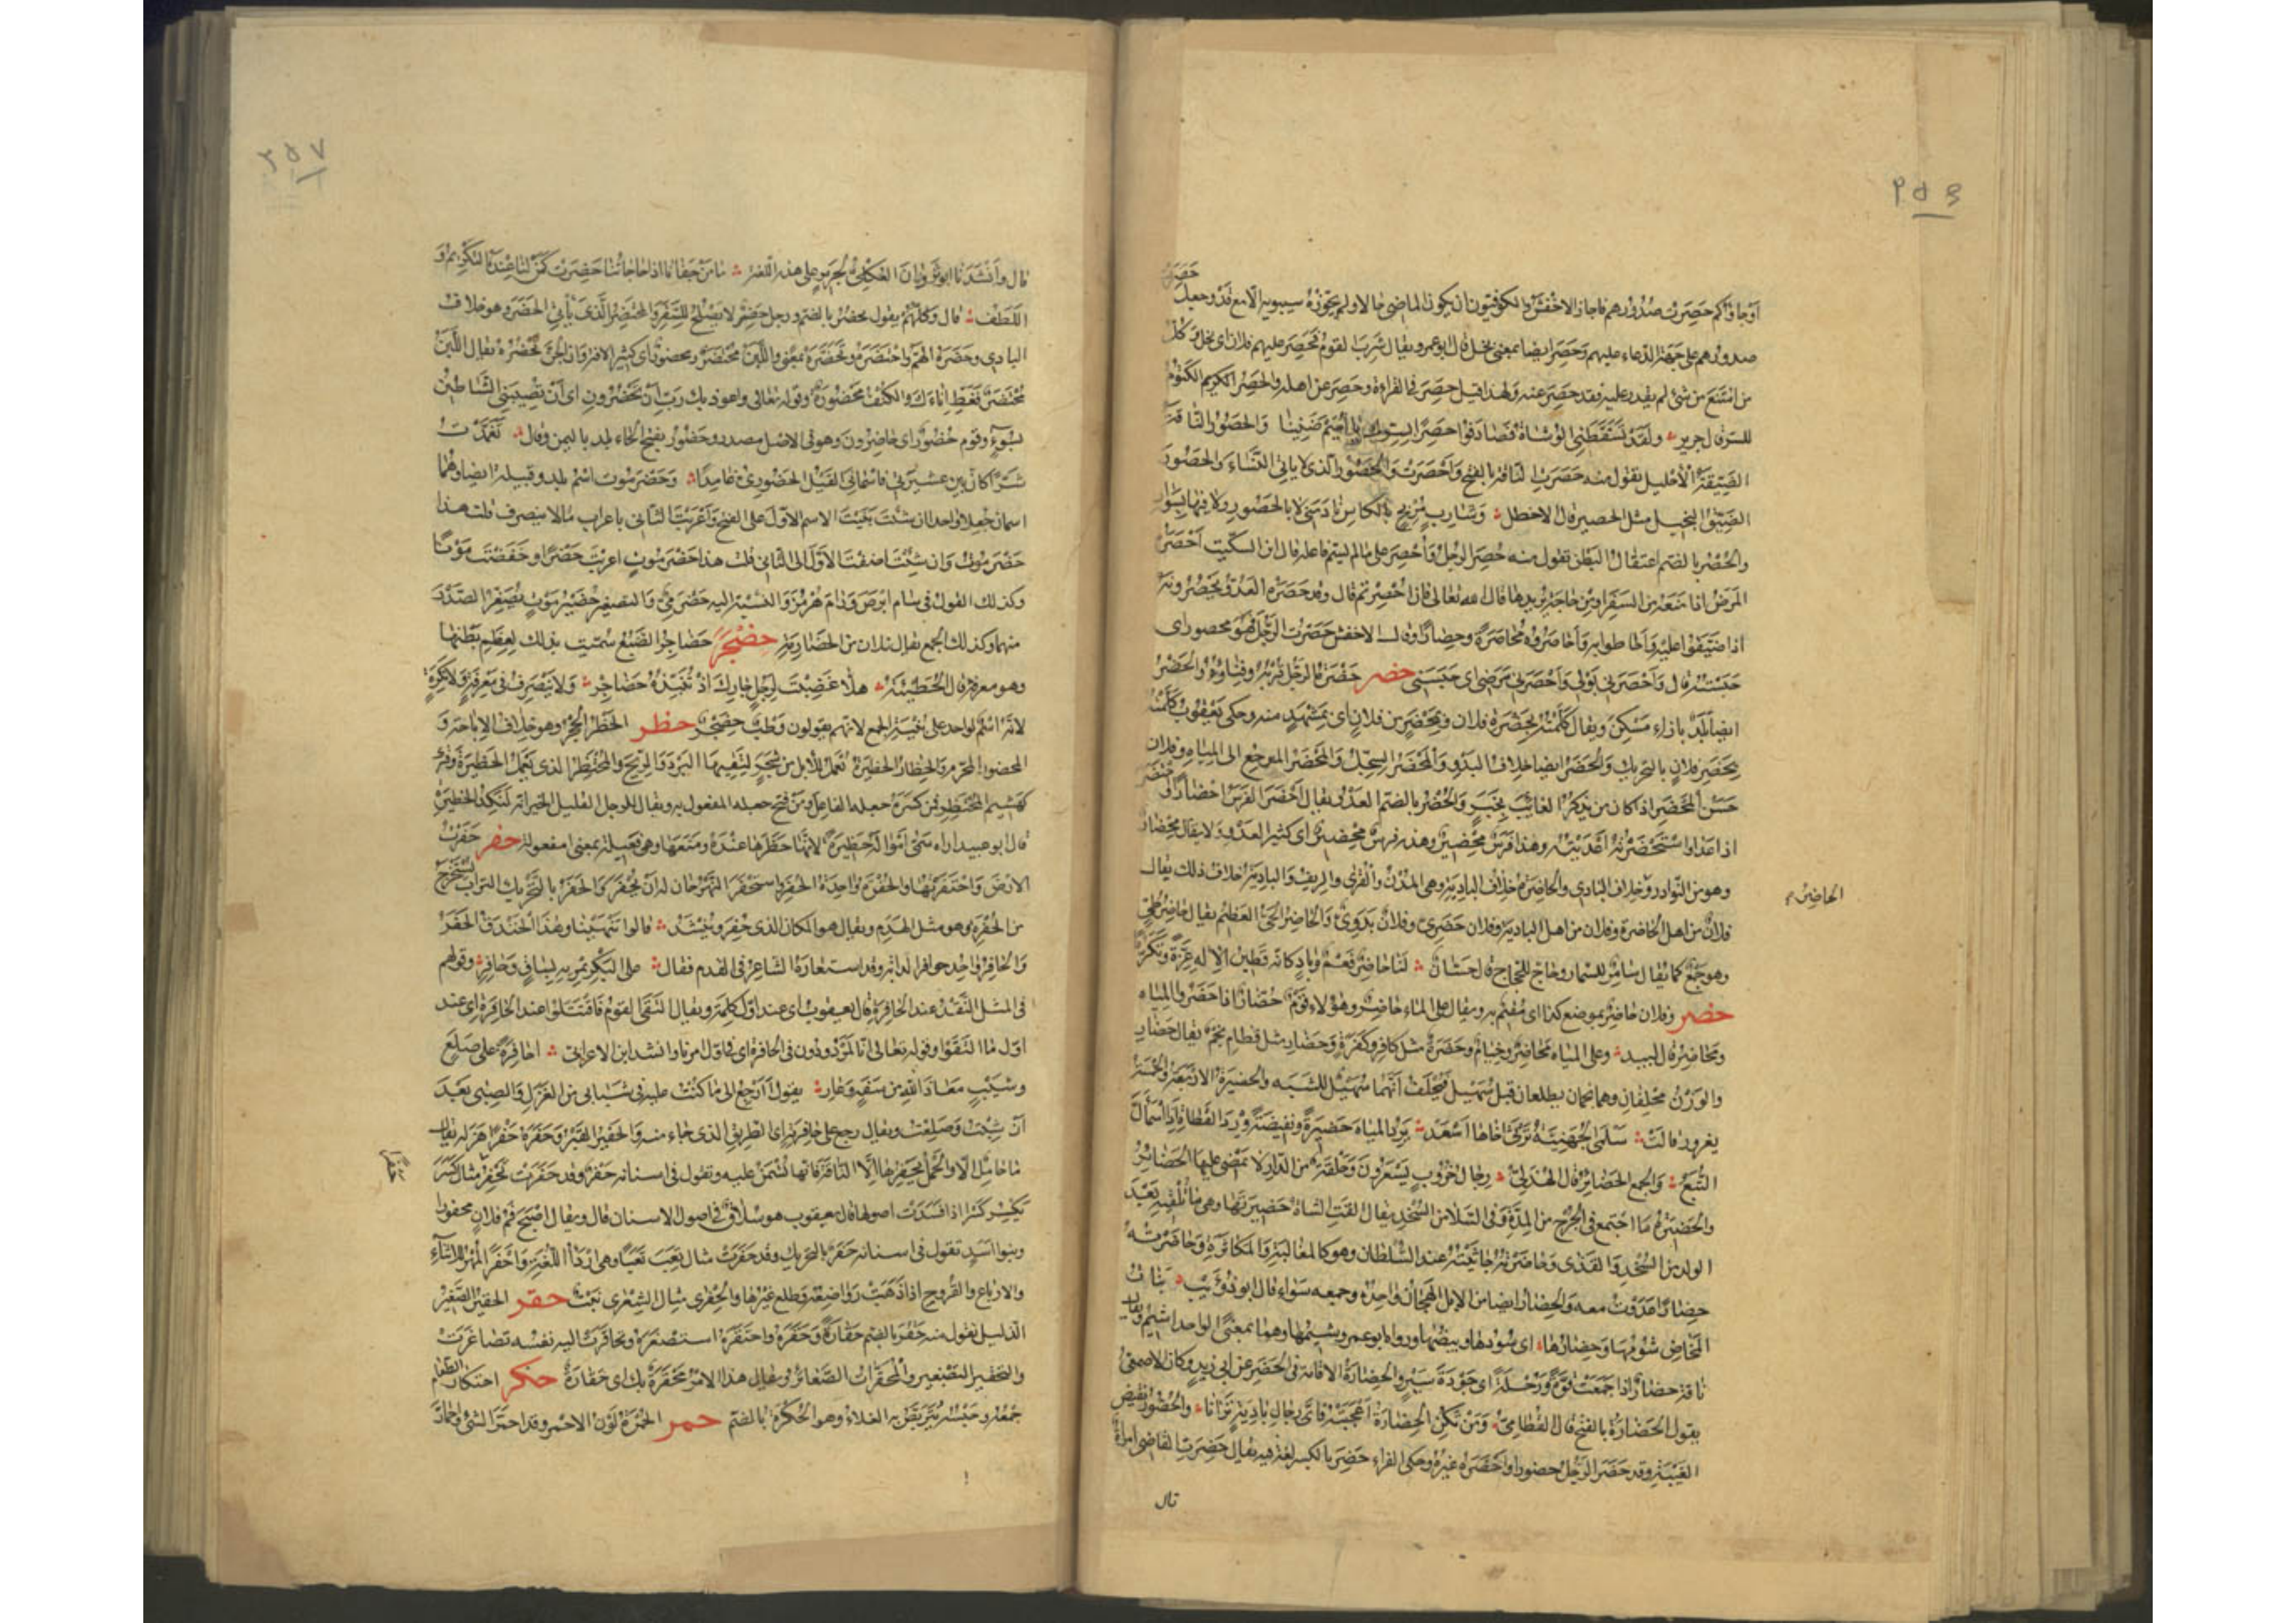 ٣٥٦
حَصِرَتْ
اَوْجاؤكم حَصِرَت صُدُورُهم فاجاز الاخْفَشُ والكوفيّون ان يكون الماضى حالا ولم يُجَوِّزْهُ سيبويه الّا مع قَدْ وجعل
صدورهم على جهة الدعاء عليهم وحَصِرَ ايضا بمعنى بَخِلَ قال ابو عمرو ويقال شَرِبَ القوم فَحَصِرَ عليهم فلان اى بخل وكلّ
من امْتَنَعَ من شئ لم يقدر عليه فقد حَصِرَ عنه ولهذا قيل حصِرَ فى القراءة وحصِرَ عن اهله والحَصِرُ الكريم الكَتوم
للسرّ قال جرير ولَقَدْ تَسَقَّطَنِى الوُشاةُ فَصادَفُوا حَصِرًا بسرّكِ يا اُمَيْمَ ضَنِينا والحَصُورُ الناقة
الضَيِّقَةُ الاَحْليل تقول منه حَصُرَتِ الناقة بالفتح واَحْصَرَتْ والحَصُورُ الذى لا يأتى النِساءَ والحَصُورُ
الضَيِّقُ البخيل مثل الحصير قال الاخطل وشارِبٍ مُرْبِحٍ بالكاسِ نادَمَنى لا بالحَصُورِ ولا فيها بِسَوّار
والحُصْرُ بالضم اعتقالُ البَطْن تقول منه حُصِرَ الرجُلُ واُحْصِرَ على ما لم يسمّ فاعله قال ابن السكّيت اَحْصَرَهُ
المرَضُ اذا مَنَعَهُ من السَفَر اومِن حاجَة يُريدها قال الله تعالى فَاِنْ اُحْصِرْتُم قال وقد حَصَرَهُ العَدُوُّ يَحْصُرُونَهُ
اذا ضَيَّقُوا عليه واَحاطوا به وحاصَرُوهُ مُحاصَرَةً وحِصارًا وقال الاخفش حَصَرْتُ الرجُلَ فهو محصور اى
حَبَسْتُهُ قال واَحْصَرَنى بَوْلى واَحْصَرَنى مَرَضى اى حَبَسَنى حضر حَضْرَةُ الرجُل قُرْبُهُ وفِناؤُهُ والحَضْرُ
ايضًا بَلَدٌ بازاء مَسْكِنٍ ويقال كَلَّمْتُهُ بِحَضْرَةِ فلان وبِمَحْضَرٍ من فلان اى بِمَشْهَدٍ منه وحكى يَعْقُوب كَلَّمْتُهُ
بِحَضَرِ فلانٍ بالتحريك والحَضَرُ ايضا خلاف البَدْو والمَحْضَرُ السِجِلُّ والمَحْضَرُ المرجع الى المِياه وفلان
حَسَنُ المَحْضَرِ اذا كان مِمَّن يَذكُر الغائِبَ بِخَيرٍ والحُضْرُ بالضم العَدْوُ يقال اَحْضَرَ الفَرَسُ اِحْضارًا
اذا عَدا واسْتَحْضَرْتُهُ اَعْدَيْتُهُ وهذا فَرَسٌ مِحْضِيرٌ وهذه فرس مِحْضِيرٌ اى كثير العَدْو ولا يقال مِحْضار
وهو من النَوادر وخِلاف البادى والحاضِرَةُ خِلاف البادِية وهى المُدُنُ والقُرَى والرِيف والبادية خلاف ذلك يقال
الحاضِرُ م
فلانٌ من اهل الحاضرة وفلان من اهل البادية وفلان حَضَرِىٌّ وفلان بَدَوِىٌّ والحاضِرُ الحَىُّ العَظيم يقال حاضِرُ طَيِّئٍ
وهو جَمْعٌ كما يقال سامِرٌ للسُمّار وحاجٌّ للحُجّاج قال حَسّان لَنا حاضِرٌ فَعْمٌ وبادٍ كاَنّه قَطِينُ الاِلٰه عِزَّةً وتَكَرُّمًا
حضر وفلان حاضِرٌ بموضع كذا اى مُقيمٌ به ويقال على الماء حاضِرٌ وهؤلاء قَوْمٌ حُضّارٌ اذا حَضَرُوا المِياه
ومَحاضِرُ قال لبيد وعلى المِياه مَحاضِرٌ وخِيامُ وحَضَرَةٌ مثل كافِرٍ وكَفَرَةٍ وحَضارِ مثل قَطامِ نَجْمٌ يقال حَضارِ
والوَزْنُ مُحْلِفانِ وهما نجمان يطلعان قبل سُهَيْل فيُحْلَفُ انَّهما سُهَيْلٌ للشَبَه والحَضيرَةُ الاربَعَةُ والخَمْسَةُ
يغزون قالَتْ سَلْمَى الجُهَنِيَّةُ تَرْثى اخاها اَسْعَدَ يَرِدُ المياهَ حَضيرَةً ونَفيضَةً وِرْدَ القَطاةِ اِذا اسْمَاَلَّ
التُبَّعُ والجمع الحَضائِرُ قال الهُذلِىُّ رِجالُ حُرُوبٍ يَسْعَرُونَ وحَلْقَةٌ من الدارِ لا تَمْضى عليها الحَضائِرُ
والحَضِيرَةُ مَا اجْتَمَعَ فى الجُرْح من المِدَّة وفى السَلا من السُخْدِ يقال اَلْقَتِ الشاةُ حَضيرَتَها وهى ما تُلْقيه بَعْدَ
الولد من السُخْدِ والقَذَى وحاضَرْتُهُ جاثَيْتُهُ عند السُلْطان وهو كالمُغالَبة والمُكاثَرَة وحاضَرْتُهُ
حِضارًا عَدَوْتُ معه والحِضارُ ايضا من الابل الهِجانُ واحِدُهُ وجمعه سَواء قال ابو ذُؤَيْب بَناتُ
المَخاضِ شُومُها وحِضارُها اى سُودُها وبيضُها ورواه ابو عمرو شيمُها وهما بمعنًى الواحد اشيم ويقال
ناقة حِضارٌ اذا جَمَعَتْ قُوَّةً ورُحْلَةً اى جَوْدَةَ سَيْرٍ والحِضارَةُ الاقامة فى الحَضَر عن ابى زيد وكان الاصمعىُّ
يقول الحَضارَةُ بالفتح قال القُطامىُّ ومَنْ تَكُنِ الحِضارَةُ اَعْجَبَتْهُ فاَىَّ رِجالِ بادِيَةٍ تَرَانا والحُضُورُ نقيض
الغَيْبَةِ وقد حَضَرَ الرَجُلُ حضورا واَحْضَرَه غيرُهُ وحكى الفراء حَضِرَ بالكسر لغة فيه يقال حَضِرَتِ القاضِىَ امراةٌ
قال
٣٥٧
قال واَنْشَدَنا ابو ثَرْوانَ العُكْلِىُّ لِجَريرٍ على هذه اللغة ما مَن جَفانا اذا حاجاتُنا حَضِرَتْ كَمَنْ لنا عِنْدَهُ التَكْرِيمُ و
اللَطَفُ قال وكُلُّهُمْ يقول يحضُرُ بالضم ورجل حَضِرٌ لا يَصْلُحُ للسَفَر والمُحْتَضِرُ الَّذى يأتى الحَضَر وهو خلاف
البادى وحَضَرَهُ الهَمُّ واحْتَضَرَهُ وتَحَضَّرَهُ بمعنًى واللَّبَنُ مُحْتَضَرٌ ومحضورٌ اى كثير الآفة وانّ الجِنَّ تَحْضُرُهُ يقال اللَّبَنُ
مُحْتَضَرٌ فَغَطِّ اِناءَكَ والكُنُفُ مَحْضُورَةٌ وقوله تعالى واعوذ بك رَبِّ اَنْ يَحْضُرُونِ اى اَنْ تُصِيبَنِى الشَياطِينُ
بسُوءٍ وقوم حُضُورٌ اى حاضِرُونَ وهو فى الاصْل مصدر وحَضُور بفتح الحاء بلد باليمن وقال تَغَمَّدْتُ
شَرًّا كانَ بين عَشيرَتى فاَسْمانىَ القَيْلُ الحَضُورِىُّ غامِدًا وحَضْرَمَوْتُ اسْم بلد وقبيلة ايضا وهُما
اسمان جُعِلا واحدا ان شئْتَ بَنَيْتَ الاسم الاوّلَ على الفتح واَعْرَبْتَ الثانى باعراب ما لا ينصرف قلت هذا
حَضْرَمَوْتُ وان شِئْتَ اضفْتَ الاَوَّلَ الى الثانى قلت هذا حَضْرُ مَوْتٍ اعربْتَ حَضْرًا وخَفَضْتَ مَوْتًا
وكذلك القولُ فى سام ابرَصَ ورامَ هُرْمُزَ والنسْبَة اليه حَضْرَمِىٌّ والتصغير حُضَيْرُ مَوْتٍ تُصَغِّرُ الصَدْرَ
منهما وكذلك الجمع يقال فلان من الحَضارِمَة حضجر حَضاجِرُ الضَبُعُ سُمّيت بذلك لِعِظَمِ بَطْنِها
وهو معرفة قال الحُطَيْئَةُ هلّا غَضِبْتَ لِرَحْلِ جارِكَ اِذْ تُنَبِّذُهُ حَضاجِرْ ولا يَنْصَرِفُ فى مَعْرِفَةٍ ولا نَكِرَةٍ
لانّه اسْمٌ لواحد على بُنيَةِ الجمع لانّهم يقولون وَطْبٌ حِضَجْرٌ حظر الحَظْرُ الحَجْرُ وهو خِلاف الاِباحة و
المحضور المحرّم والحِظارُ الحَظيرَةُ تُعْمَلُ للاِبل من شَجَرٍ لِتَقِيهَا البَرْدَ والرِيحَ والمُحْتَظِرُ الذى يَعْمَلُ الحَظيرَةَ وقُرِئَ
كَهَشِيمِ المُحْتَظِرِ فمَن كَسَرَهُ جعله الفاعِلَ ومَنْ فتح جعله المفعول به ويقال للرجل القليل الخير انّه لَنَكِدُ الحَظيرَةِ
قال ابو عبيد اراه سَمَّى اَمْوالَهُ حَظيرَةً لانَّهُ حَظَرَها عِنْدَهُ ومَنَعَها وهى فَعِيلة بمعنى مفعولة حفر حَفَرْتُ
الارْضَ واحْتَفَرْتُها والحُفْرَةُ واحِدَةُ الحُفَرِ واستَحْفَرَ النَهْرُ حانَ له اَنْ يُحْفَرَ والحَفَرُ بالتَحْريك التراب يُسْتَخْرَجُ
من الحُفْرَةِ وهو مثل الهَدَمِ ويقال هو المكان الذى حُفِرَ ويُنْشَد قالوا انْتَهَيْنا وهٰذَا الخَنْدَقُ الحَفَرُ
والحافِرُ واحِد حوافر الدابّة وقد استعارَهُ الشاعِرُ فى القَدم فقال على البَكْرِ يَمْرِيهِ بِساقٍ وحافِرِ وقولهم
فى المَثَل النَقْدُ عند الحافِرَةِ قال يعقوب اى عند اوّل كلِمَة ويقال الْتَقَى القَوْمُ فَاقْتَتَلُوا عند الحافِرَةِ اى عند
اَوّل مَا الْتَقَوْا وقوله تعالى اَئِنّا لَمَرْدُودُونَ فى الحافرة اى فى اوّل امرنا وانشد ابن الاعرابى احافِرَةً على صَلَعٍ
وشَيْبٍ مَعاذَ اللهِ من سَفَهٍ وعَارِ يقول اَاَرْجِعُ الى ما كُنْتُ عليه فى شَبابى من الغَزَل والصِبَى بَعْدَ
اَنْ شِبْتُ وصَلِعْتُ ويقال رجع على حافِرَتِهِ اى الطريقِ الذى جاء منه والحَفيرُ القَبْرُ وحَفَرَهُ حَفْرًا هَزَلَه يقال
ما حامِلٌ الّا والحَمْلُ يَحْفِرُها اِلّا الناقة فانّها تَسْمَنُ عليه وتقول فى اسنانه حَفْرٌ وقد حَفَرَتْ تَحْفِرُ مثال كَسَرَ
يَكْسِرُ كَسْرًا اذا فَسَدَتْ اصولها قال يعقوب هو سُلاقٌ فى اصول الاسنان قال ويقال اصْبَحَ فَمُ فلانٍ محفورا
وبنو اَسَدٍ تقول فى اسنانه حَفَرٌ بالتحريك وقد حَفِرَتْ مثال تَعِبَ تَعَبًا وهى اَرْدَأُ اللُغَتَيْن واَحْفَرَ المُهْرُ للاِثْناءِ
والارباع والقُروح اذا ذَهَبَتْ رَواضِعُهُ وطلع غيرُها والحِفْرَى مثال الشِعْرَى نَبْتٌ حقر الحقيرُ الصَغيرُ
الذليل تقول منه حَقُرَ بالضم حَقارَةً وحَقَرَهُ واحتَقَرَهُ استصْغَرَهُ وتحاقَرَتْ اليه نفسه تصاغَرَتْ
والتحقير التصْغير والمُحَقَّراتُ الصَغائر ويقال هذا الامْرُ مَحْقَرَةٌ بك اى حَقارَةٌ حكر احتكار الطَعام
جَمْعُهُ وحَبْسُهُ يُتَرَبَّصُ به الغَلاءُ وهو الحُكْرَةُ بالضم حمر الحُمْرَةُ لَوْنُ الاحْمر وقد احمَرَّ الشئ واحْمارّ